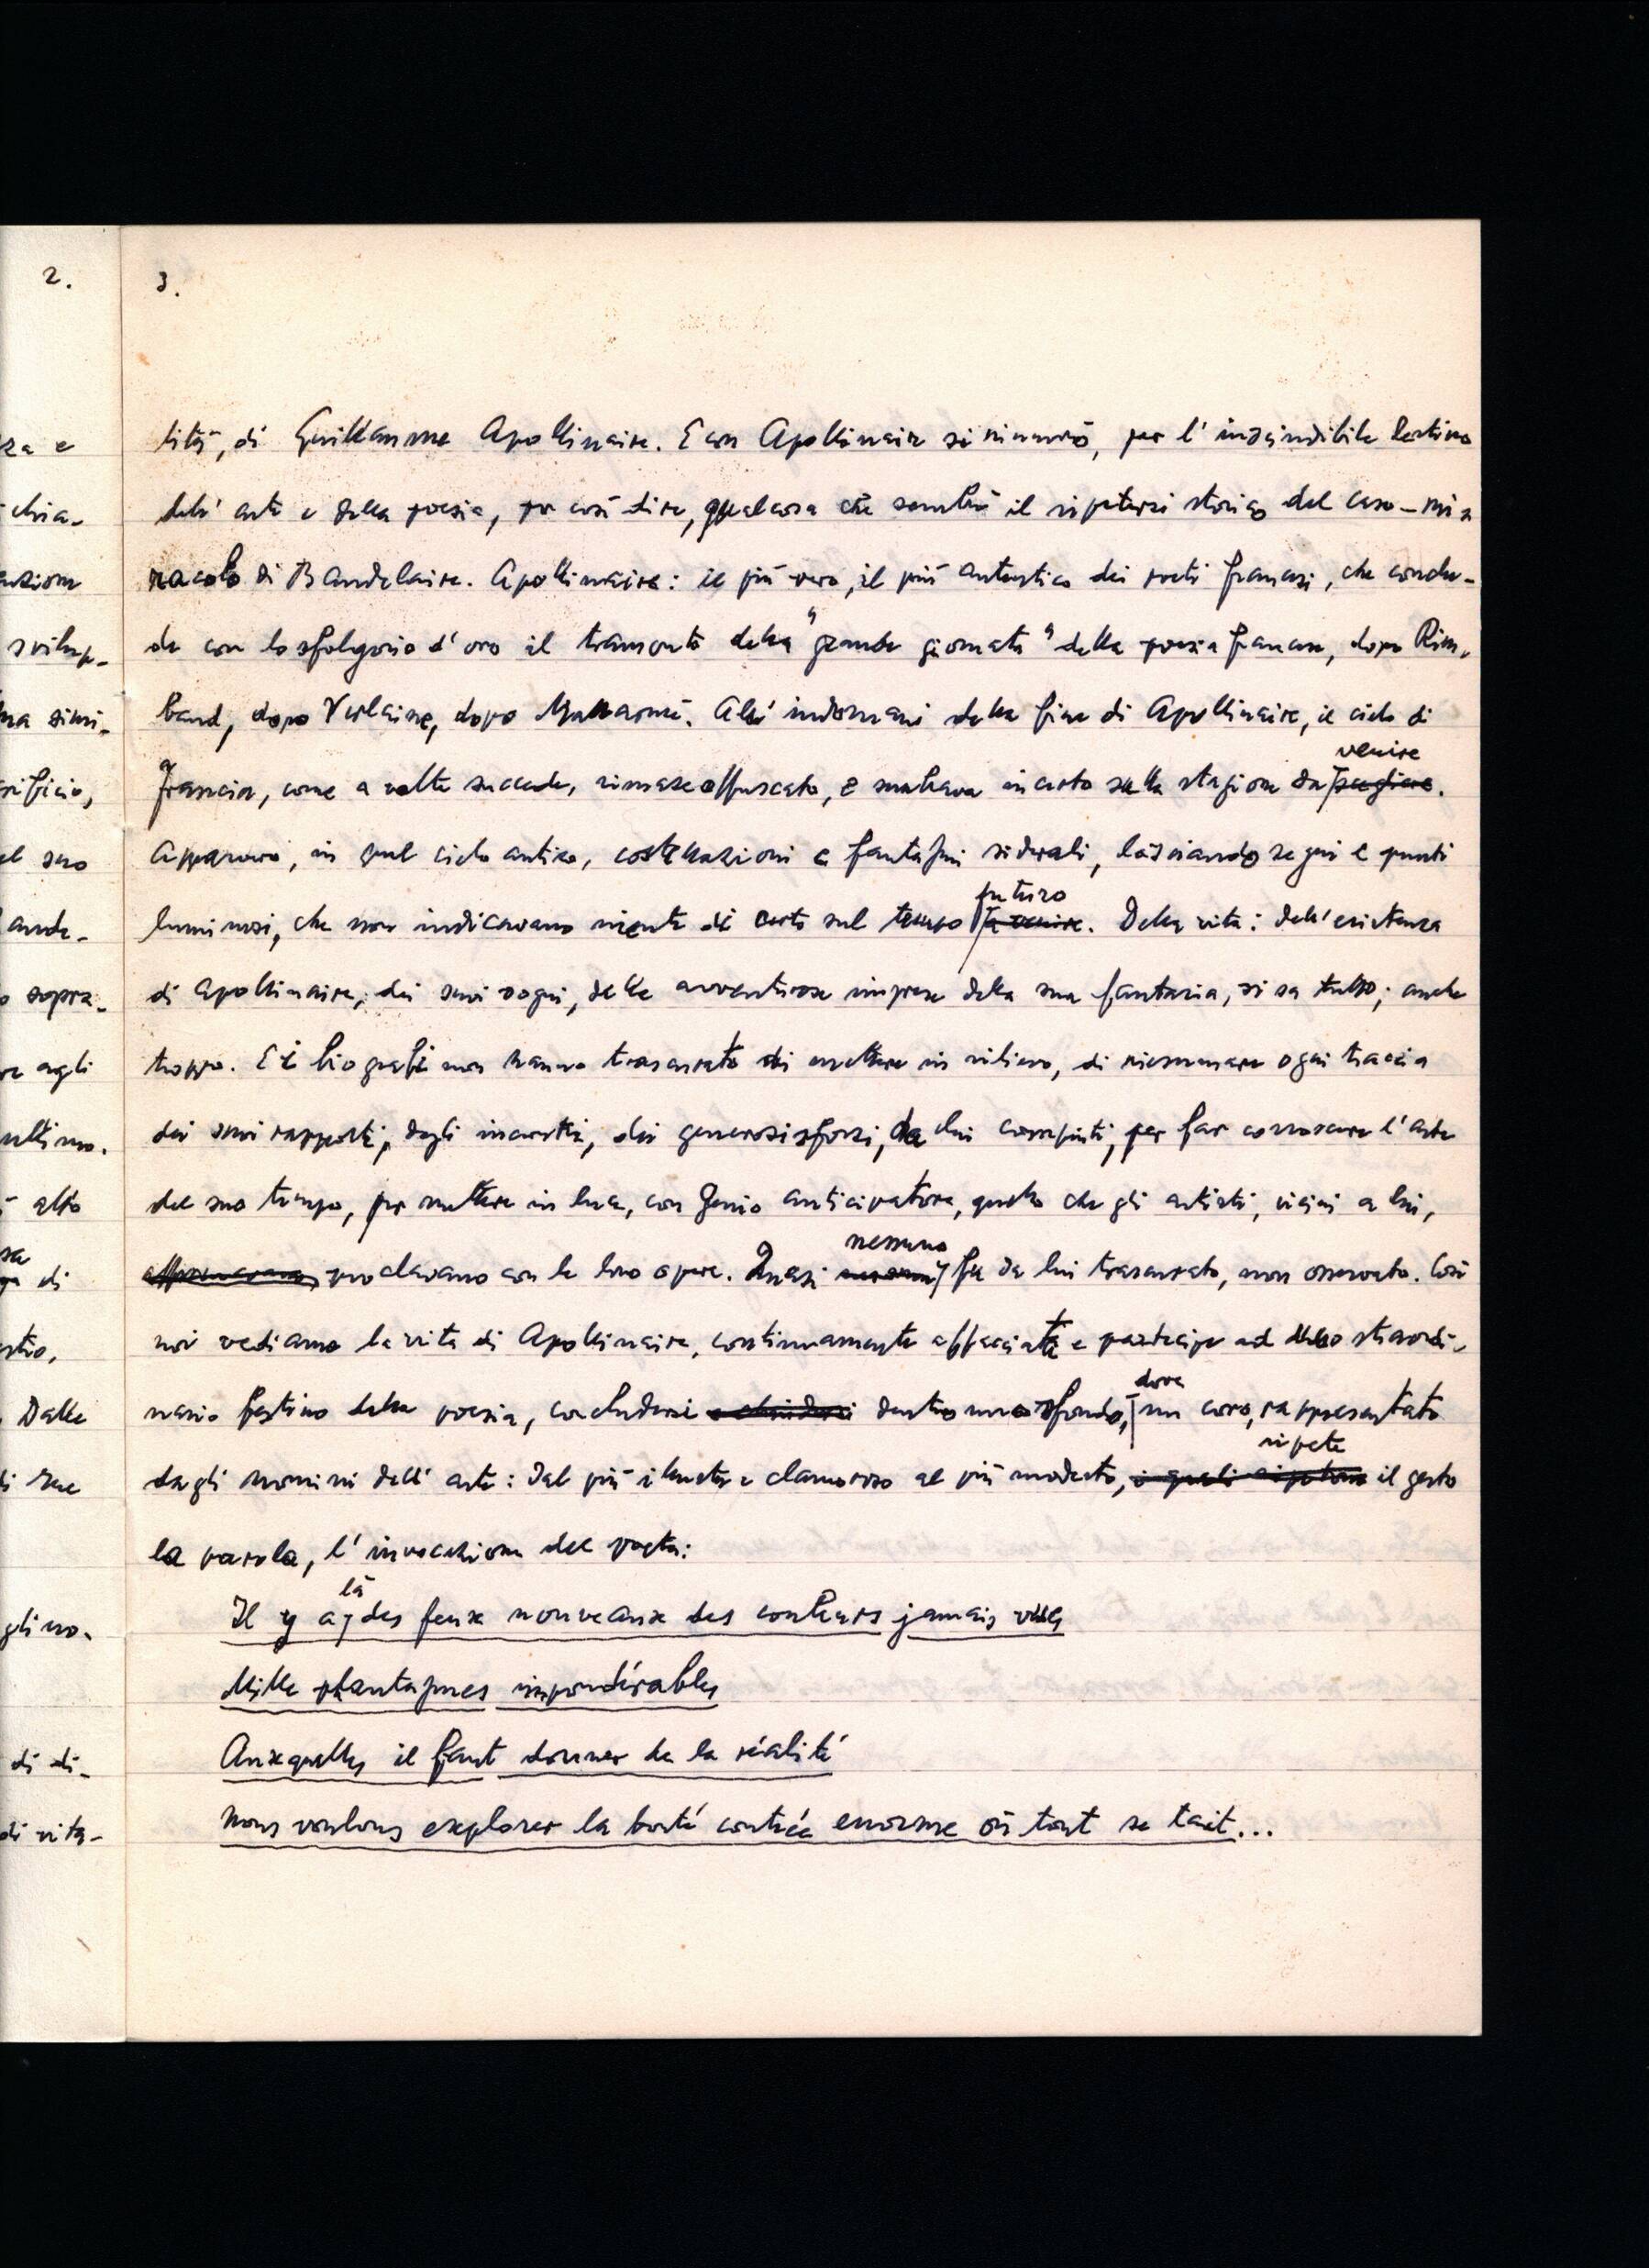 2.
za e
chia-
svilup-
ma simi-
suo
ande-
sopra-
agli
ultimo.
alto
di
Dalle
di
gli no-
di di-
di vita-
3.
lità, di Guillaume Apollinaire. E con Apollinaire si rinnovò, per l'inscindibile destino
dell'arte e della poesia, per così dire, qualcosa che sembrò il ripetersi storico del caso-mi
racolo di Baudelaire. Apollinaire: il più vero, il più autentico dei poeti francesi, che conclu-
de con lo sfolgorio d'oro il tramonto della "grande giornata" della poesia francese, dopo Rim-
baud, dopo Verlaine, dopo Mallarmé. All'indomani della fine di Apollinaire, il cielo di
Francia, come a volte succede, rimase offuscato, e sembrava incerto sulla stagione da venire.
Apparvero, in quel cielo antico, costellazioni e fantasmi siderali, lasciando segni e punti
luminosi, che non indicavano niente di certo sul tempo futuro. Della vita: dell'esistenza
di Apollinaire, dei suoi sogni, delle avventurose imprese della sua fantasia, si sa tutto; anche
troppo. E i biografi non hanno trascurato di mettere in rilievo, di riesumare ogni traccia
dei suoi rapporti, degli incontri, dei generosi sforzi, da lui compiuti, per far conoscere l'arte
del suo tempo, per mettere in luce, con genio anticipatore, quello che gli artisti, vicini a lui,
proclavano con le loro opere. Quasi nessuno fu da lui trascurato, non osservato. Così
noi vediamo la vita di Apollinaire, continuamente affacciata e partecipe ad straordi-
nario festino della poesia, concludersi dentro uno sfondo, dove un coro, rappresentato
dagli uomini dell'arte: dal più illustre e clamoroso al più modesto, ripete il gesto
la parola, l'invocazione del poeta:
Il y a là des feux nouveaux des couleurs jamais vues
Mille phantasmes impondérables
Auxquelles il faut donner de la réalité
Nous voulons explorer la bonté contrée énorme où tout se tait...